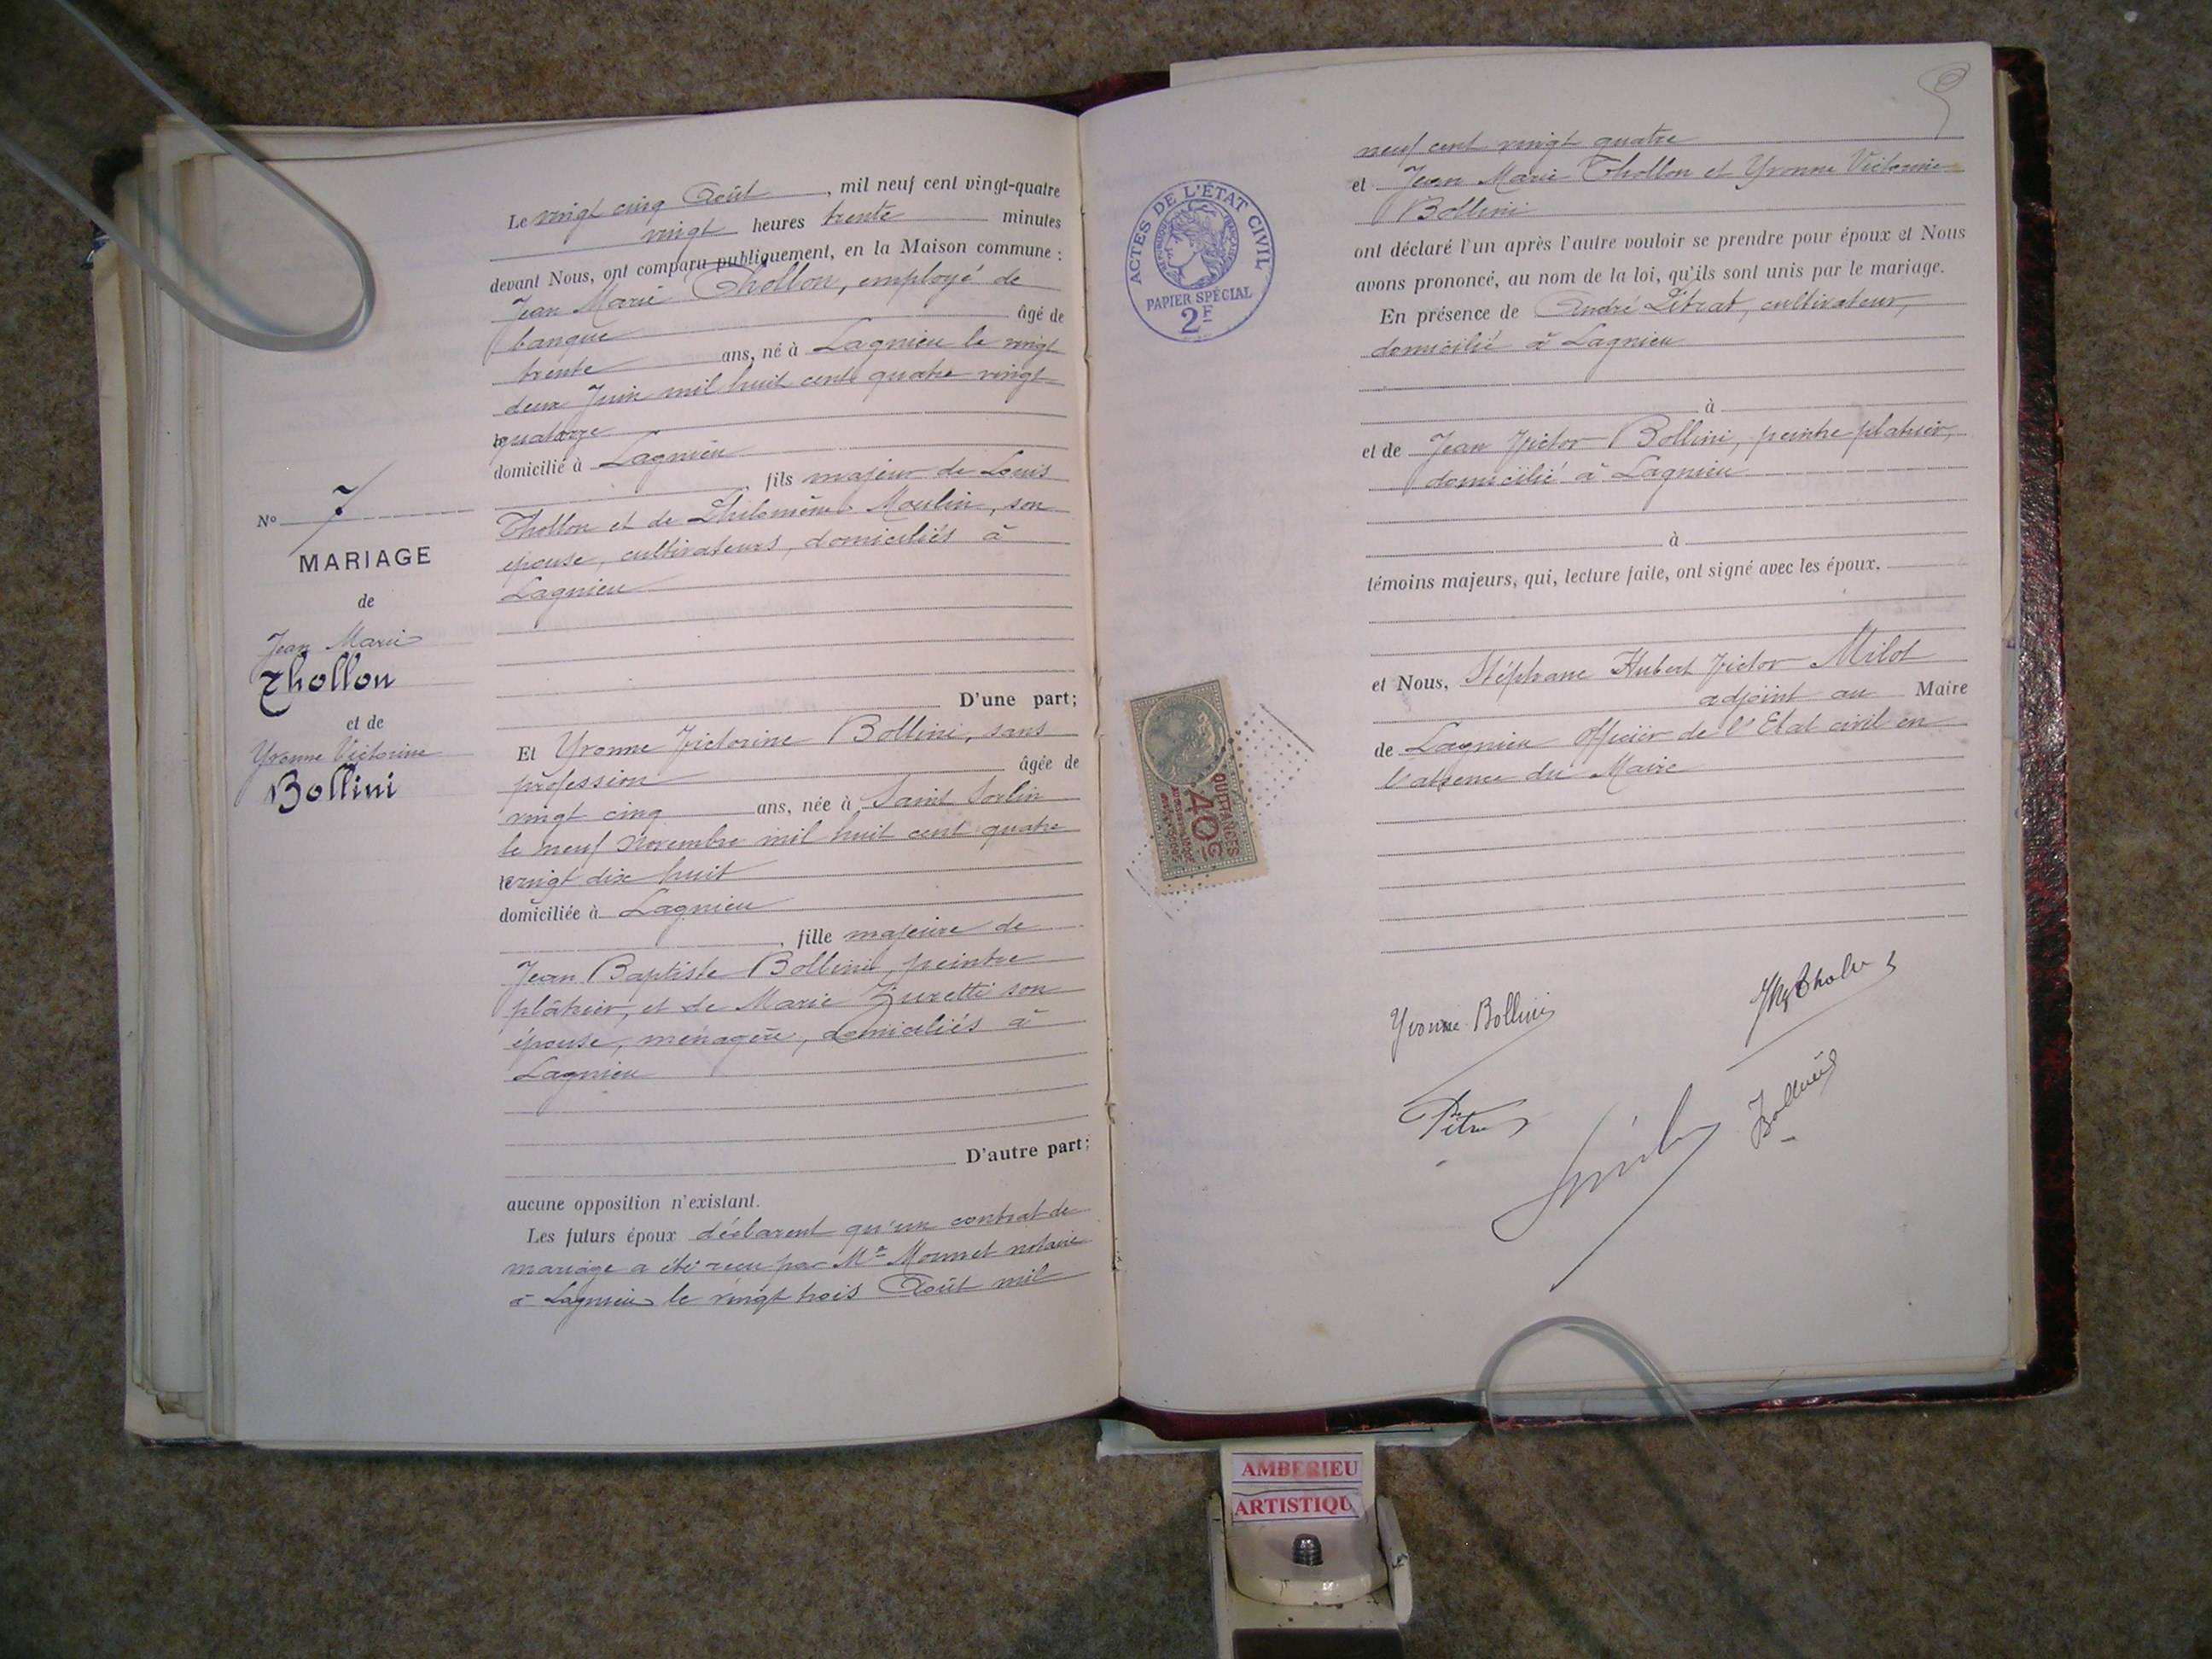 Le vingt cinq Août, mil neuf cent vingt-quatre
vingt heures trente minutes
devant Nous, ont comparu publiquement, en la Maison commune :
Jean Marie Thollon, employé de
banque âgé de
trente ans, né à Lagnieu le vingt
deux Juin mil huit cent quatre vingt
quatorze
domicilié à Lagnieu
, fils majeur de Louis
Thollon et de Philomène Moulin, son
épouse, cultivateurs, domiciliés à
Lagnieu
D'une part;
Et Yvonne Victorine Bollini, sans
profession âgée de
vingt cinq ans, née à Saint Sorlin
le neuf Novembre mil huit cent quatre
vingt dix huit
domiciliée à Lagnieu
, fille majeure de
Jean Baptiste Bollini, peintre
plâtrier, et de Marie Zuretti son
épouse, ménagère, domiciliés à
Lagnieu
D'autre part;
aucune opposition n'existant.
Les futurs époux déclarent qu'un contrat de
mariage a été reçu par Me Monnet notaire
à Lagnieu le vingt trois Août mil
No 7
MARIAGE
de
Jean Marie
Thollon
et de
Yvonne Victorine
Bollini
neuf cent vingt quatre
et Jean Marie Thollon et Yvonne Victorine
Bollini
ont déclaré l'un après l'autre vouloir se prendre pour époux et Nous
avons prononcé, au nom de la loi, qu'ils sont unis par le mariage.
En présence de André, cultivateur,
domicilié à Lagnieu
à
et de Jean Victor Bollini, peintre plâtrier,
domicilié à Lagnieu
à
témoins majeurs, qui, lecture faite, ont signé avec les époux.
et Nous, Stéphane Hubert Victor Milot
adjoint au Maire
de Lagnieu Officier de l'Etat civil en
l'absence du Maire
Yvonne Bollini
Bollini
ACTES DE L'ÉTAT CIVIL
PAPIER SPÉCIAL
2F
QUITTANCES
40c
AMBERIEU
ARTISTIQU